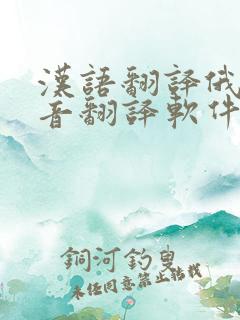 漢語翻譯俄
音翻譯軟件
銅河釣叟
未经同意禁止转载